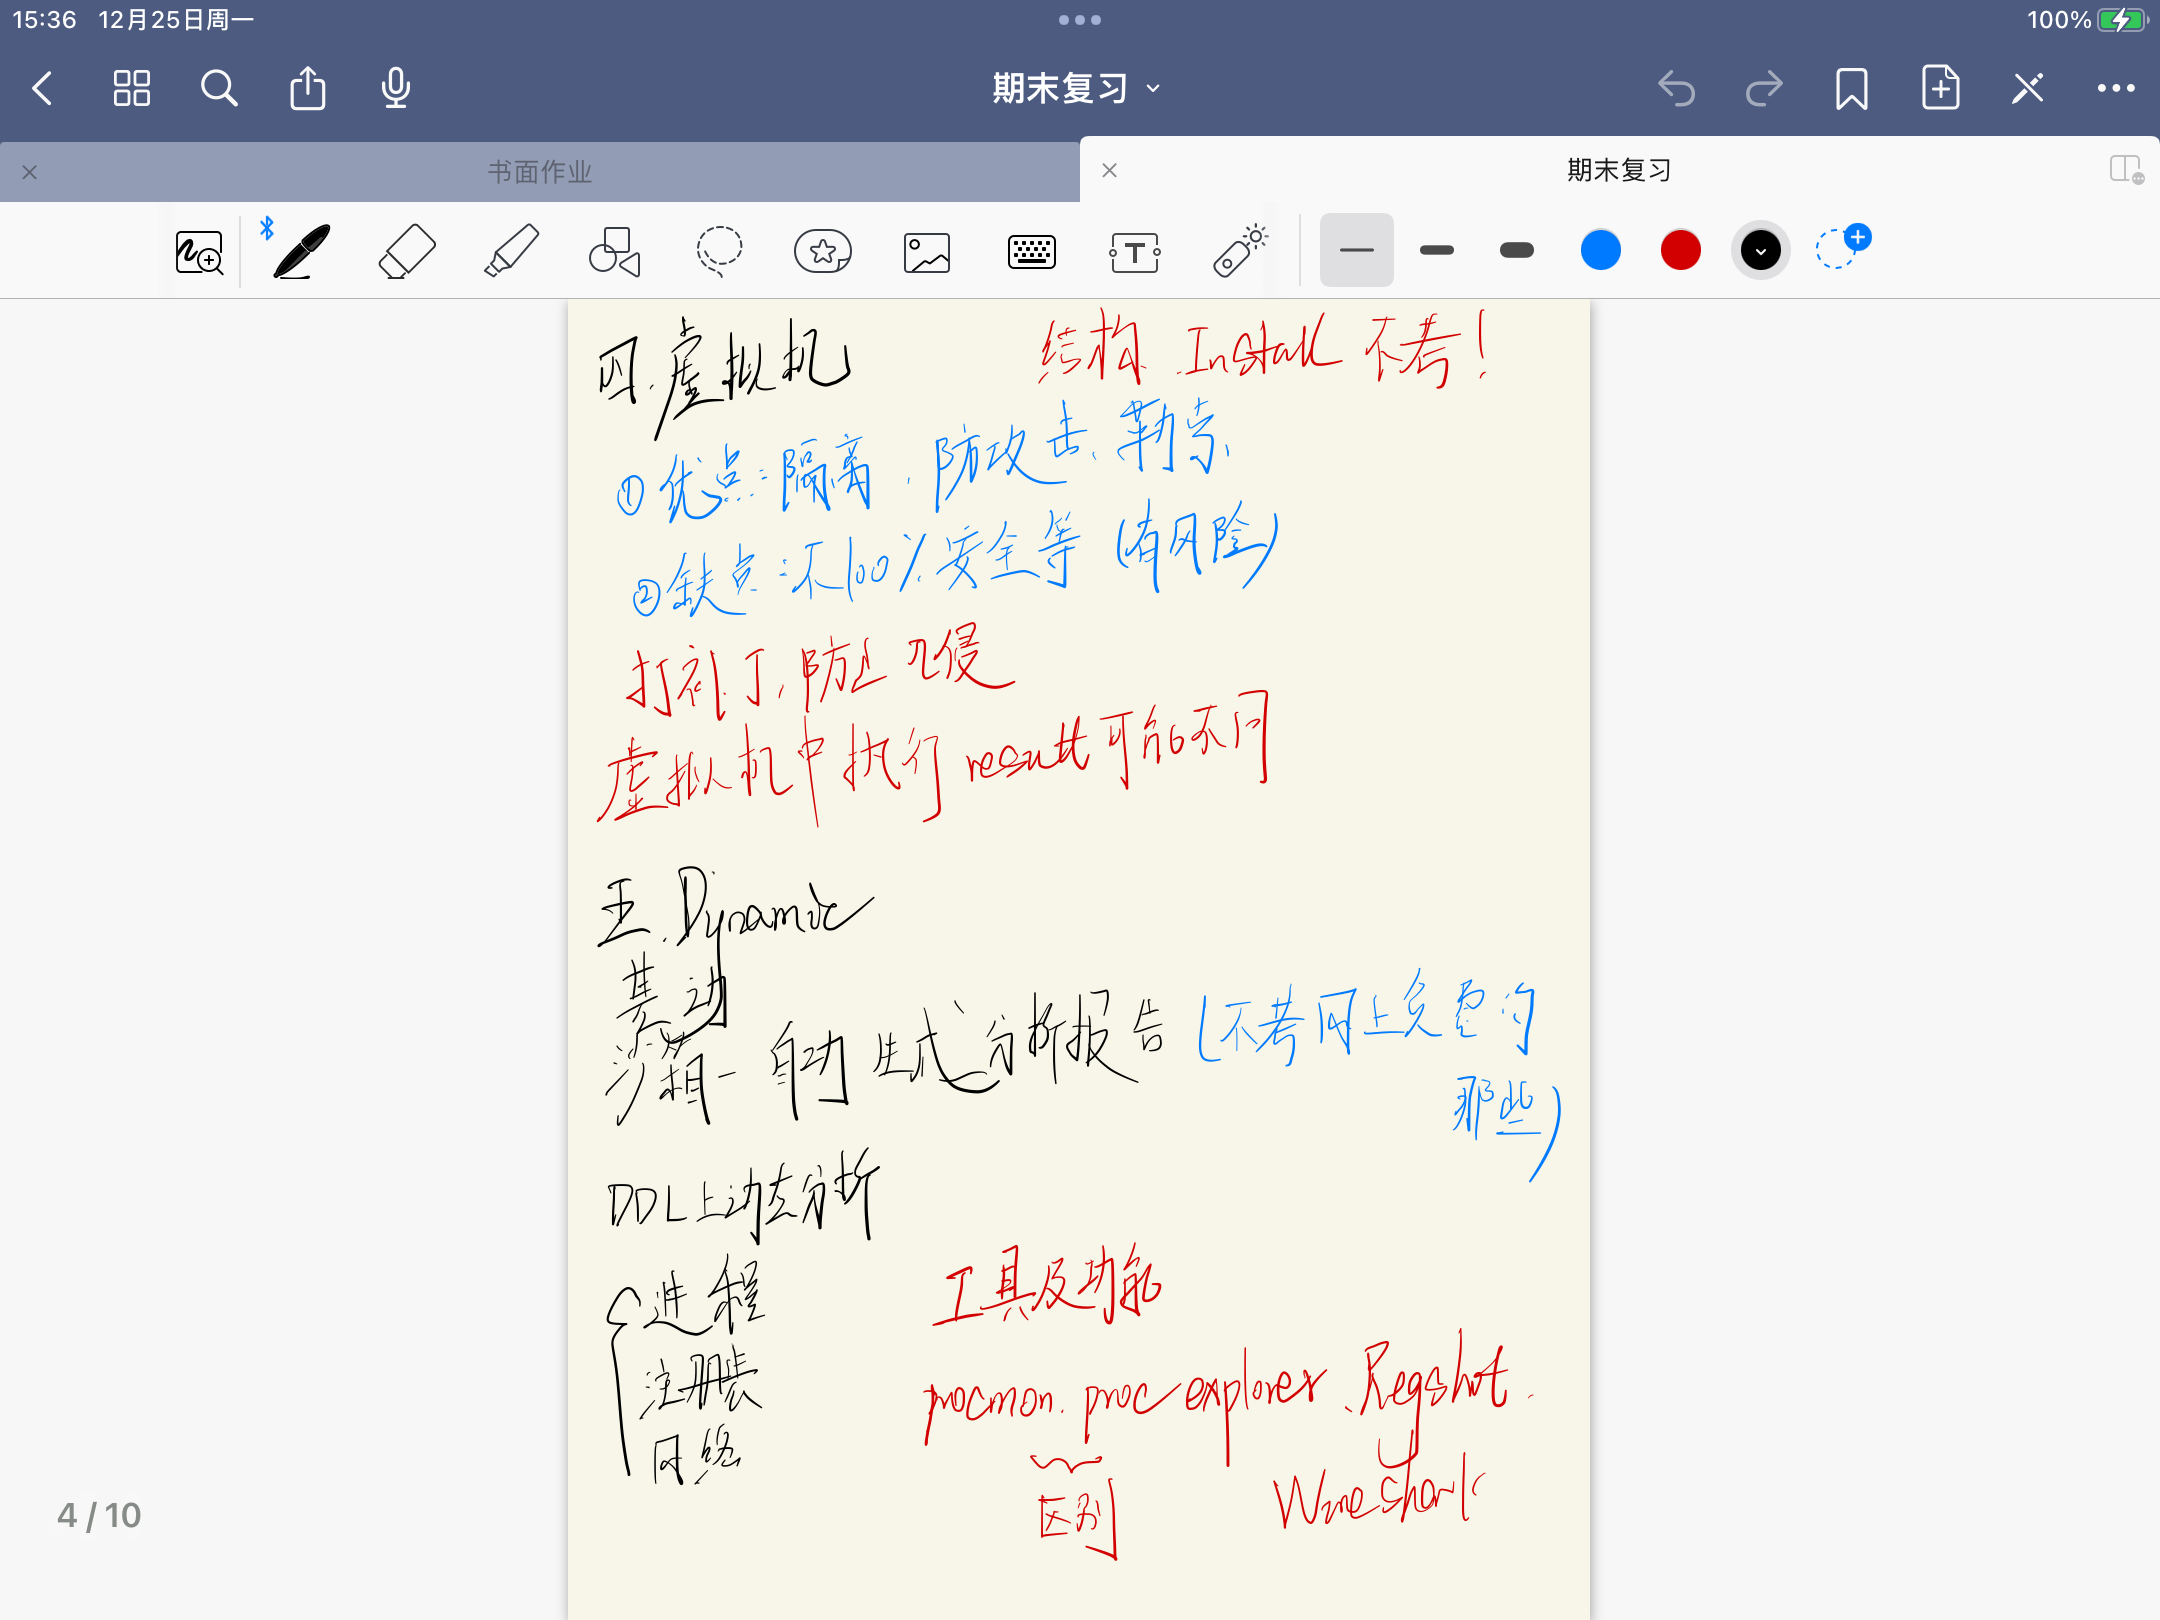 15:36 12月25日周一
100%
期末复习
书面作业
期末复习
四.虚拟机
结构.Install 不考!
①优点:隔离,防攻击、勒索、
②缺点:不100%安全等(有风险)
打补丁,防止入侵
虚拟机中执行result可能不同
五.Dynamic
基动
沙箱—自动生成式分析报告(不考网上免费的
那些)
DDL上动态分析
进程
注册表
网络
工具及功能
procmon.proc explorer、Regshot.
区别
Wireshark
4 / 10